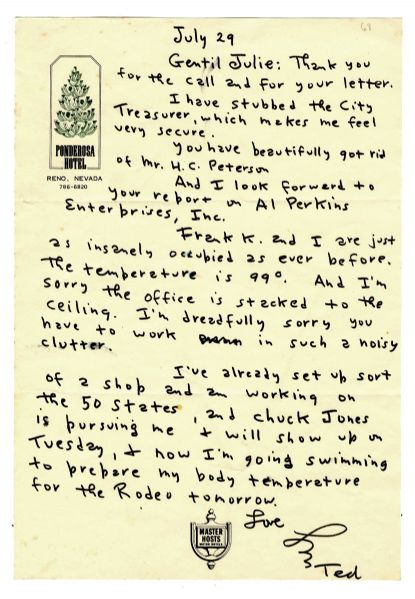 68
July 29
Gentil Julie: Thank you
for the call and for your letter.
I have stubbed the City
Treasurer, which makes me feel
very secure.
You have beautifully got rid
of Mr. H.C. Peterson
And I look forward to
your report on Al Perkins
Enterprises, Inc.
PONDEROSA
HOTEL
RENO, NEVADA
786-6820
Frank K. and I are just
as insanely occupied as ever before.
The temperature is 99°. And I'm
sorry the office is stacked to the
ceiling. I'm dreadfully sorry you
have to work in such a noisy
clutter.
I've already set up sort
of a shop and am working on
the 50 States, and Chuck Jones
is pursuing me & will show up on
Tuesday, & now I'm going swimming
to prepare my body temperature
for the Rodeo tomorrow.
Love
Ted
MASTER
HOSTS